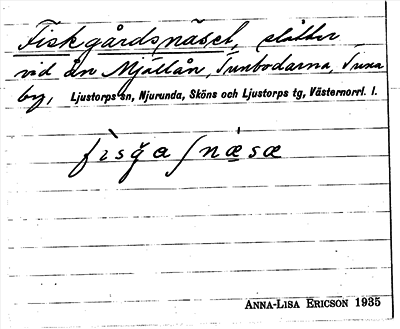 Fiskgårdsnäset, slåtter
vid ån Mjällån, Tunbodarna, Tuna
by, Ljustorps sn, Njurunda, Sköns och Ljustorps tg, Västernorrl. l.
ANNA-LISA ERICSON 1935